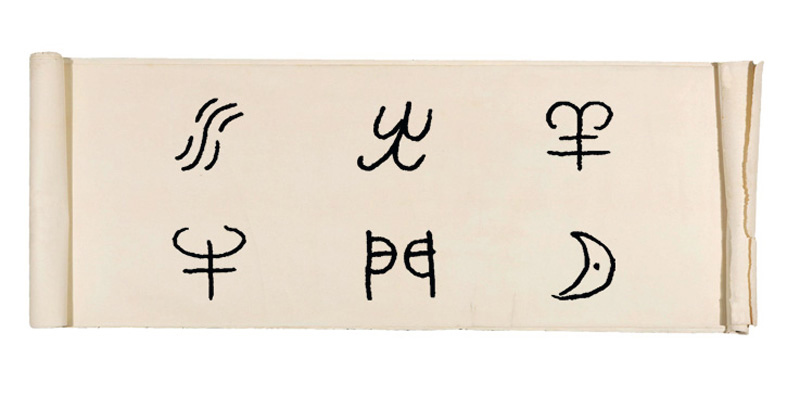 水 羊
牛 門 月